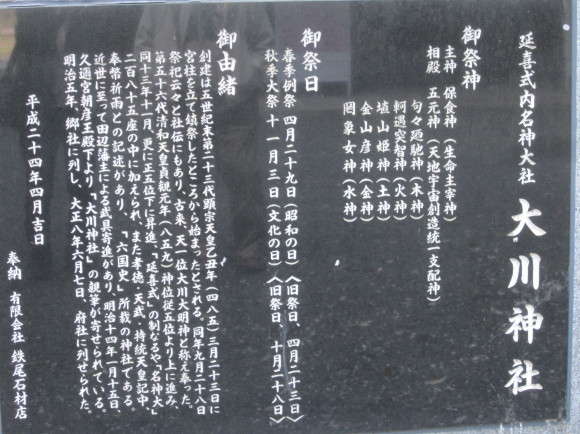 延喜式内名神大社 大川神社
御祭神
主神 保食神(生命主宰神)
相殿 五元神(天地宇宙創造統一支配神)
句々廼馳神(木神)
軻遇突智神(火神)
埴山姫神(土神)
金山彦神(金神)
罔象女神(水神)
御祭日
春季例祭 四月二十九日(昭和の日)〈旧祭日、四月二十三日〉
秋季大祭 十一月三日(文化の日)〈旧祭日、十月二十八日〉
御由緒
創建は五世紀末第二十三代顕宗天皇乙丑年(四八五)三月二十三日に
宮柱を立て鎮祭したところから始まったとされる。同年九月二十八日
祭祀云々と社伝にもあり、古来、天一位大川大明神と称え奉った。
第五十六代清和天皇貞観元年(八五九)神位従五位より上に進み、
同十三年十一月、更に正五位下に昇進、「延喜式」の制なるや「名神大」
二百八十五座の中に加えられ、また孝徳・天武・持統天皇記中、
奉幣祈雨との記述があり、「六国史」所載の神社である。
近世に至って田辺藩主による武具寄進があり、明治十四年一月十五日、
久邇宮朝彦王殿下より、「大川神社」の親筆が寄せられている。
明治五年、郷社に列し、大正八年六月七日、府社に列せられた。
平成二十四年四月吉日
奉納 有限会社 鉄尾石材店